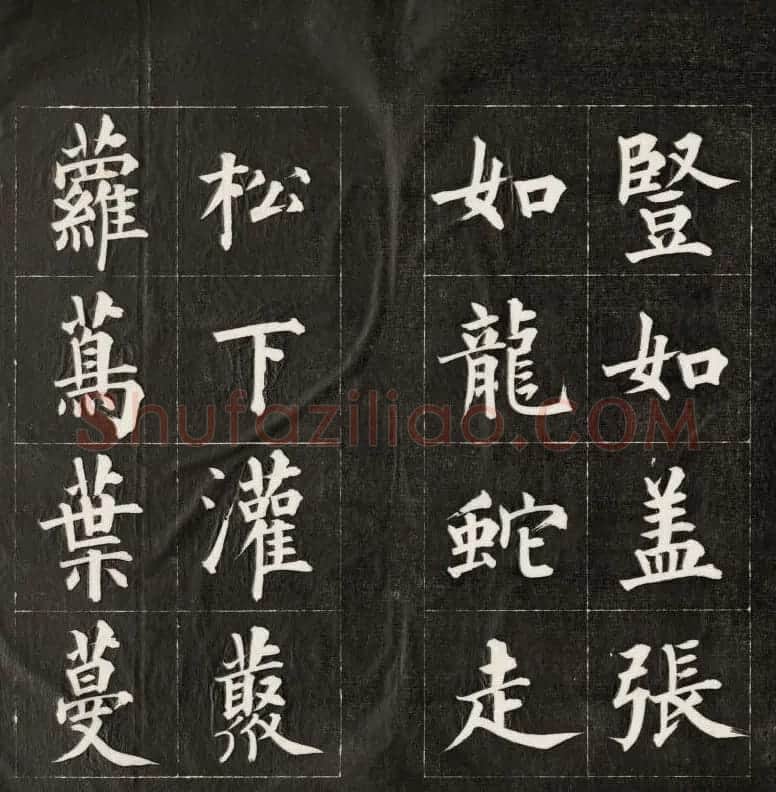 豎如盖張
如龍蛇走
松下灌藂
蘿蔦葉蔓
Shufaziliao.COM